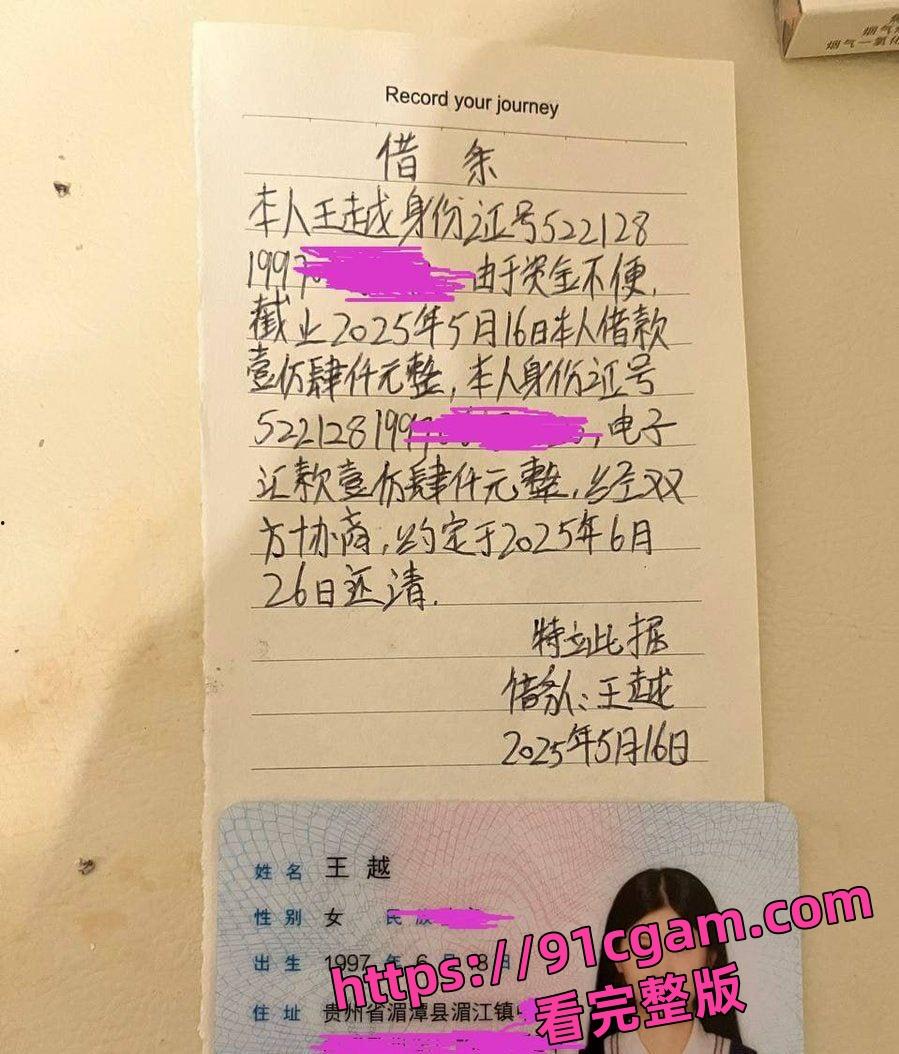 烟气
烟气一氧化
Record your journey
借 条
本人王越身份证号522128
1997 由于资金不便,
截止2025年5月16日本人借款
壹仿肆仟元整,本人身份证号
522128199 ,电子
汇款壹仿肆仟元整,经双
方协商,约定于2025年6月
26日还清.
特立此据
借条人:王越
2025年5月16日
姓名 王越
性别 女 民族
出生 1997 年 6 月 18 日
住址 贵州省湄潭县湄江镇
https://91cgam.com
看完整版